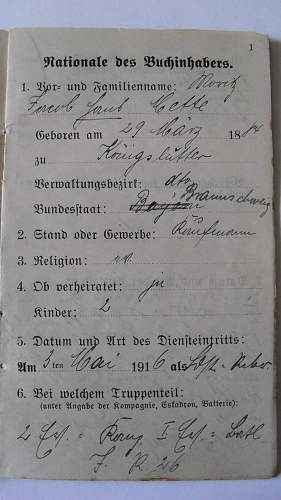 1
Nationale des Buchinhabers.
1. Vor- und Familienname: Moritz
Jacob
Geboren am 29 März 1884
zu Königslutter
Verwaltungsbezirk: dto
Bundesstaat: Bayern Braunschweig
2. Stand oder Gewerbe: Kaufmann
3. Religion:
4. Ob verheiratet: ja
Kinder: 2
5. Datum und Art des Diensteintritts:
Am 3ten Mai 1916 als
6. Bei welchem Truppenteil:
(unter Angabe der Kompagnie, Eskadron, Batterie):
2 I
R. 26